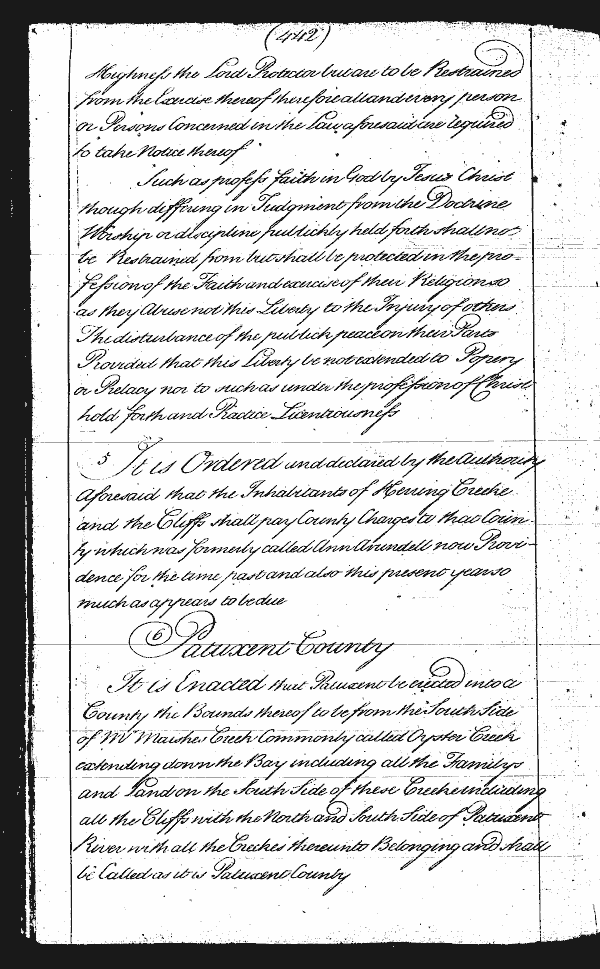 (442)
Highness the Lord Protector but are to be Restrained
from the Exercise thereof therefore all and every person
or Persons Concerned in the Law aforesaid are required
to take Notice thereof
Such as profess faith in God by Jesus Christ
though differing in Judgment from the Doctrine
Worship or discipline publickly held forth shall not
be Restrained from but shall be protected in the pro-
fession of the Faith and exercise of their Religion so
as they Abuse not this Liberty to the Injury of others
The disturbance of the publick peace on their Parts
Provided that this Liberty be not extended to Popery
or Prelacy nor to such as under the profession of Christ
hold forth and Practice Licentiousness
5 It is Ordered and declared by the Authority
aforesaid that the Inhabitants of Herring Creeke
and the Cliffs shall pay County Charges to that Coun-
ty which was formerly called Ann Arundell now Provi-
dence for the time past and also this present year so
much as appears to be due
6 Patuxent County
It is Enacted that Patuxent be erected into a
County the Bounds thereof to be from the South Side
of Mr Marshes Creek Commonly called Oyster Creek
extending down the Bay including all the Familys
and Land on the South Side of these Creeke including
all the Cliffs with the North and South Side of Patuxent
River with all the Creekes thereunto Belonging and shall
be Called as it is Patuxent County